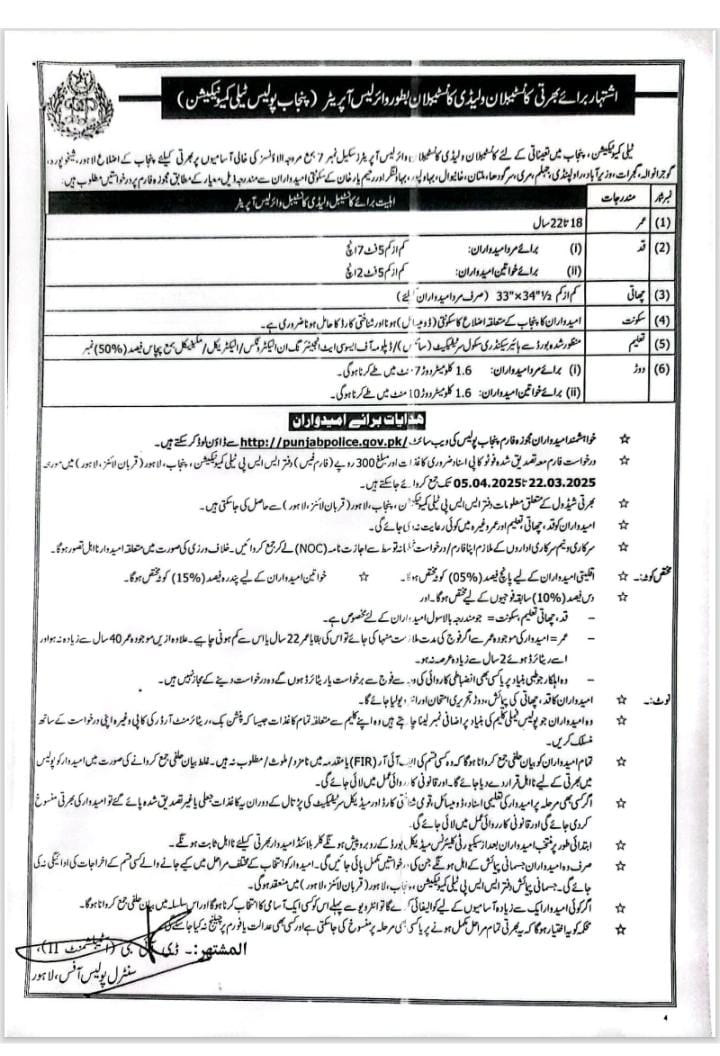 اشتہار برائے بھرتی کانسٹیبلان و لیڈی کانسٹیبلان بطور وائرلیس آپریٹر (پنجاب پولیس ٹیلی کمیونیکیشن)
ٹیلی کمیونیکیشن، پنجاب میں تعیناتی کے لئے کانسٹیبلان و لیڈی کانسٹیبلان وائرلیس آپریٹرز سکیل نمبر 7 بمع مروجہ الاؤنسز کی خالی آسامیوں پر بھرتی کیلئے پنجاب کے اضلاع لاہور، شیخوپورہ،
گوجرانوالہ، گجرات، وزیر آباد، راولپنڈی، جہلم، مری، سرگودھا، ملتان، خانیوال، بہاولپور، بہاولنگر اور رحیم یار خان کے سکونتی امیدواران سے مندرجہ ذیل معیار کے مطابق مجوزہ فارم پر درخواستیں مطلوب ہیں۔
نمبر شمار مندرجات اہلیت برائے کانسٹیبل و لیڈی کانسٹیبل وائرلیس آپریٹر
(1) عمر 18 تا 22 سال
(2) قد (i) برائے مرد امیدواران: کم از کم 5 فٹ 7 انچ
(ii) برائے خواتین امیدواران: کم از کم 5 فٹ 2 انچ
(3) چھاتی کم از کم 33"×34½" (صرف مرد امیدواران کے لئے)
(4) سکونت امیدواران کا پنجاب کے متعلقہ اضلاع کا سکونتی (ڈومیسائل) ہونا اور شناختی کارڈ کا حامل ہونا ضروری ہے۔
(5) تعلیم منظور شدہ بورڈ سے ہائیر سیکنڈری سکول سرٹیفکیٹ (سائنس) / ڈپلومہ آف ایسوسی ایٹ انجینئرنگ ان الیکٹرونکس / الیکٹریکل / مکینیکل بمع پچاس فیصد (50%) نمبر
(6) دوڑ (i) برائے مرد امیدواران: 1.6 کلومیٹر دوڑ 7 منٹ میں طے کرنا ہوگی۔
(ii) برائے خواتین امیدواران: 1.6 کلومیٹر دوڑ 10 منٹ میں طے کرنا ہوگی۔
ھدایات برائے امیدواران
☆ خواہشمند امیدواران مجوزہ فارم پنجاب پولیس کی ویب سائٹ http://punjabpolice.gov.pk/ سے ڈاؤن لوڈ کر سکتے ہیں۔
☆ درخواست فارم معہ تصدیق شدہ فوٹو کاپی اسناد ضروری کاغذات اور مبلغ 300 روپے (فارم فیس) دفتر ایس ایس پی ٹیلی کمیونیکیشن، پنجاب، لاہور (قربان لائنز، لاہور) میں مورخہ
22.03.2025 تا 05.04.2025 تک جمع کروائے جا سکتے ہیں۔
☆ بھرتی شیڈول کے متعلق معلومات دفتر ایس ایس پی ٹیلی کمیونیکیشن، پنجاب، لاہور (قربان لائنز، لاہور) سے حاصل کی جا سکتی ہیں۔
☆ امیدواران کو قد، چھاتی، تعلیم اور عمر وغیرہ میں کوئی رعایت نہ دی جائے گی۔
☆ سرکاری و نیم سرکاری اداروں کے ملازم اپنا فارم / درخواست محکمانہ توسط سے اجازت نامہ (NOC) لے کر جمع کروائیں۔ خلاف ورزی کی صورت میں متعلقہ امیدوار نااہل تصور ہوگا۔
مختص کوٹہ:۔ ☆ اقلیتی امیدواران کے لیے پانچ فیصد (05%) کوٹہ مختص ہوگا۔ ☆ خواتین امیدواران کے لیے پندرہ فیصد (15%) کوٹہ مختص ہوگا۔
☆ دس فیصد (10%) سابقہ فوجیوں کے لیے مختص ہوگا۔ اور
– قد، چھاتی، تعلیم، سکونت = جو مندرجہ بالا سول امیدواران کے لئے مخصوص ہے۔
– عمر = امیدوار کی موجودہ عمر سے اگر فوج کی مدت ملازمت منہا کی جائے تو اس کی بقایا عمر 22 سال یا اس سے کم ہونی چاہیے۔ علاوہ ازیں موجودہ عمر 40 سال سے زیادہ نہ ہو اور
اسے ریٹائرڈ ہوئے 2 سال سے زیادہ عرصہ نہ ہو۔
– وہ اہلکار جو طبی بنیاد پر یا کسی بھی انضباطی کاروائی کی وجہ سے فوج سے برخواست یا ریٹائرڈ ہوں گے وہ درخواست دینے کے مجاز نہیں ہیں۔
نوٹ:۔ ☆ امیدواران کا قد، چھاتی کی پیمائش، دوڑ، تحریری امتحان اور انٹرویو لیا جائے گا۔
☆ وہ امیدواران جو پولیس فیملی کلیم کی بنیاد پر اضافی نمبر لینا چاہتے ہیں وہ اپنے کلیم سے متعلقہ تمام کاغذات جیسا کہ پنشن بک، ریٹائرمنٹ آرڈر کی کاپی وغیرہ اپنی درخواست کے ساتھ
منسلک کریں۔
☆ تمام امیدواران کو بیان حلفی جمع کروانا ہوگا کہ وہ کسی قسم کی ایف آئی آر (FIR) یا مقدمہ میں نامزد / ملوث / مطلوب نہ ہیں۔ غلط بیان حلفی جمع کروانے کی صورت میں امیدوار کو پولیس
میں بھرتی کے لیے نااہل قرار دے دیا جائے گا۔ اور قانونی کارروائی عمل میں لائی جائے گی۔
☆ اگر کسی بھی مرحلہ پر امیدوار کی تعلیمی اسناد، ڈومیسائل، قومی شناختی کارڈ اور میڈیکل سرٹیفکیٹ کی پڑتال کے دوران یہ کاغذات جعلی یا غیر تصدیق شدہ پائے گئے تو امیدوار کی بھرتی منسوخ
کردی جائے گی اور قانونی کارروائی عمل میں لائی جائے گی۔
☆ ابتدائی طور پر منتخب امیدواران بعد از سیکیورٹی کلیئرنس میڈیکل بورڈ کے روبرو پیش ہونگے کلر بلائنڈ امیدوار بھرتی کیلئے نااہل ثابت ہونگے۔
☆ صرف وہ امیدواران جسمانی پیمائش کے اہل ہونگے جن کی درخواستیں مکمل پائی جائیں گی۔ امیدوار کو انتخاب کے مختلف مراحل میں کیے جانے والے کسی قسم کے اخراجات کی ادائیگی نہ کی
جائے گی۔ جسمانی پیمائش دفتر ایس ایس پی ٹیلی کمیونیکیشن، پنجاب، لاہور (قربان لائنز، لاہور) میں منعقد ہوگی۔
☆ اگر کوئی امیدوار ایک سے زیادہ آسامیوں کے لیے کوالیفائی کرے گا تو انٹرویو سے پہلے اس کو کسی ایک آسامی کا انتخاب کرنا ہوگا اور اس سلسلہ میں بیان حلفی جمع کروانا ہوگا۔
☆ محکمہ کو یہ اختیار ہوگا کہ یہ بھرتی تمام مراحل مکمل ہونے پر یا کسی بھی مرحلہ پر منسوخ کی جاسکتی ہے اور کسی بھی عدالت یا فورم پر چیلنج نہ کیا جا سکے گی
المشتہر:۔ ڈی آئی جی (اسٹیبلشمنٹ II)،
سنٹرل پولیس آفس، لاہور
4